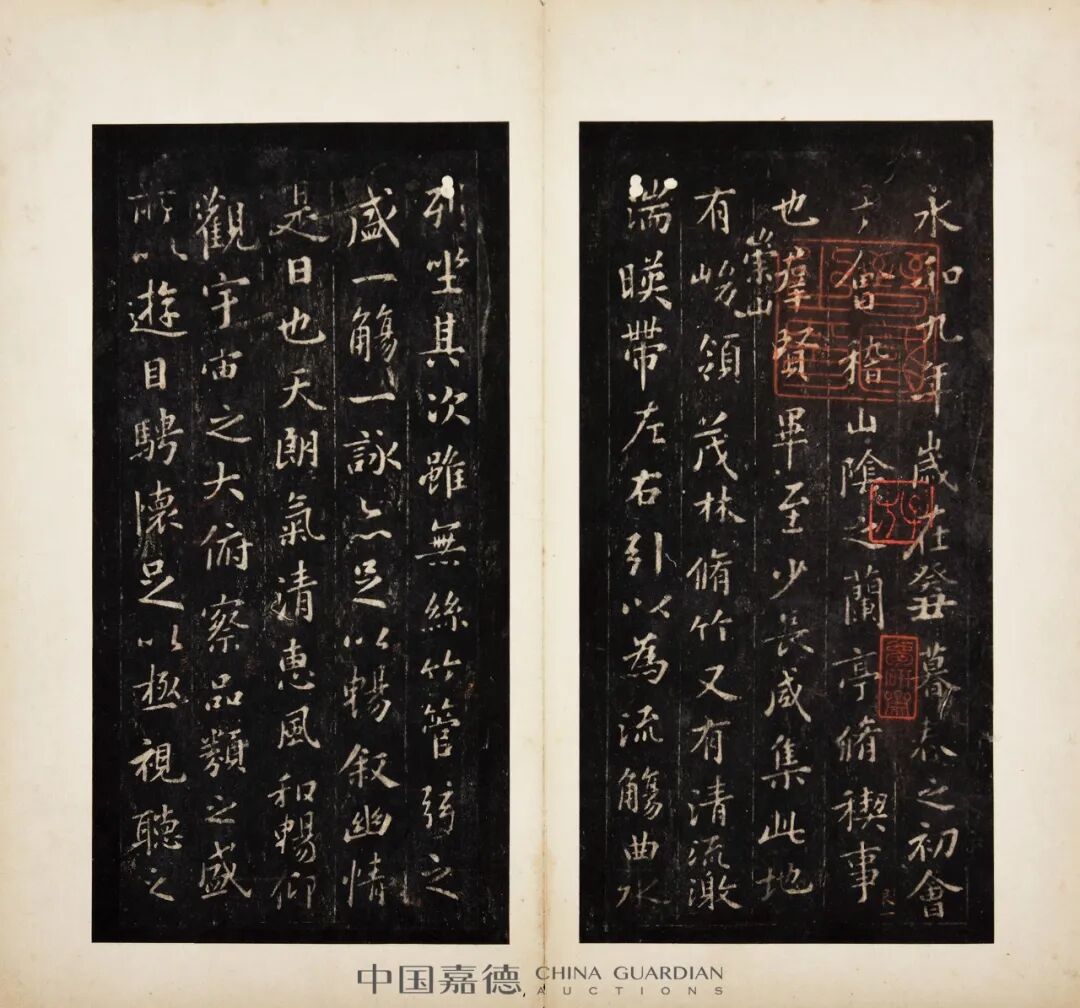 永和九年歲在癸丑暮春之初會
于會稽山陰之蘭亭脩禊事
也羣賢畢至少長咸集此地
崇山
有峻領茂林脩竹又有清流激
湍暎帶左右引以為流觴曲水
列坐其次雖無絲竹管弦之
盛一觴一詠亦足以暢叙幽情
是日也天朗氣清惠風和暢仰
觀宇宙之大俯察品類之盛
所以遊目騁懷足以極視聽之
中国嘉德 CHINA GUARDIAN
AUCTIONS